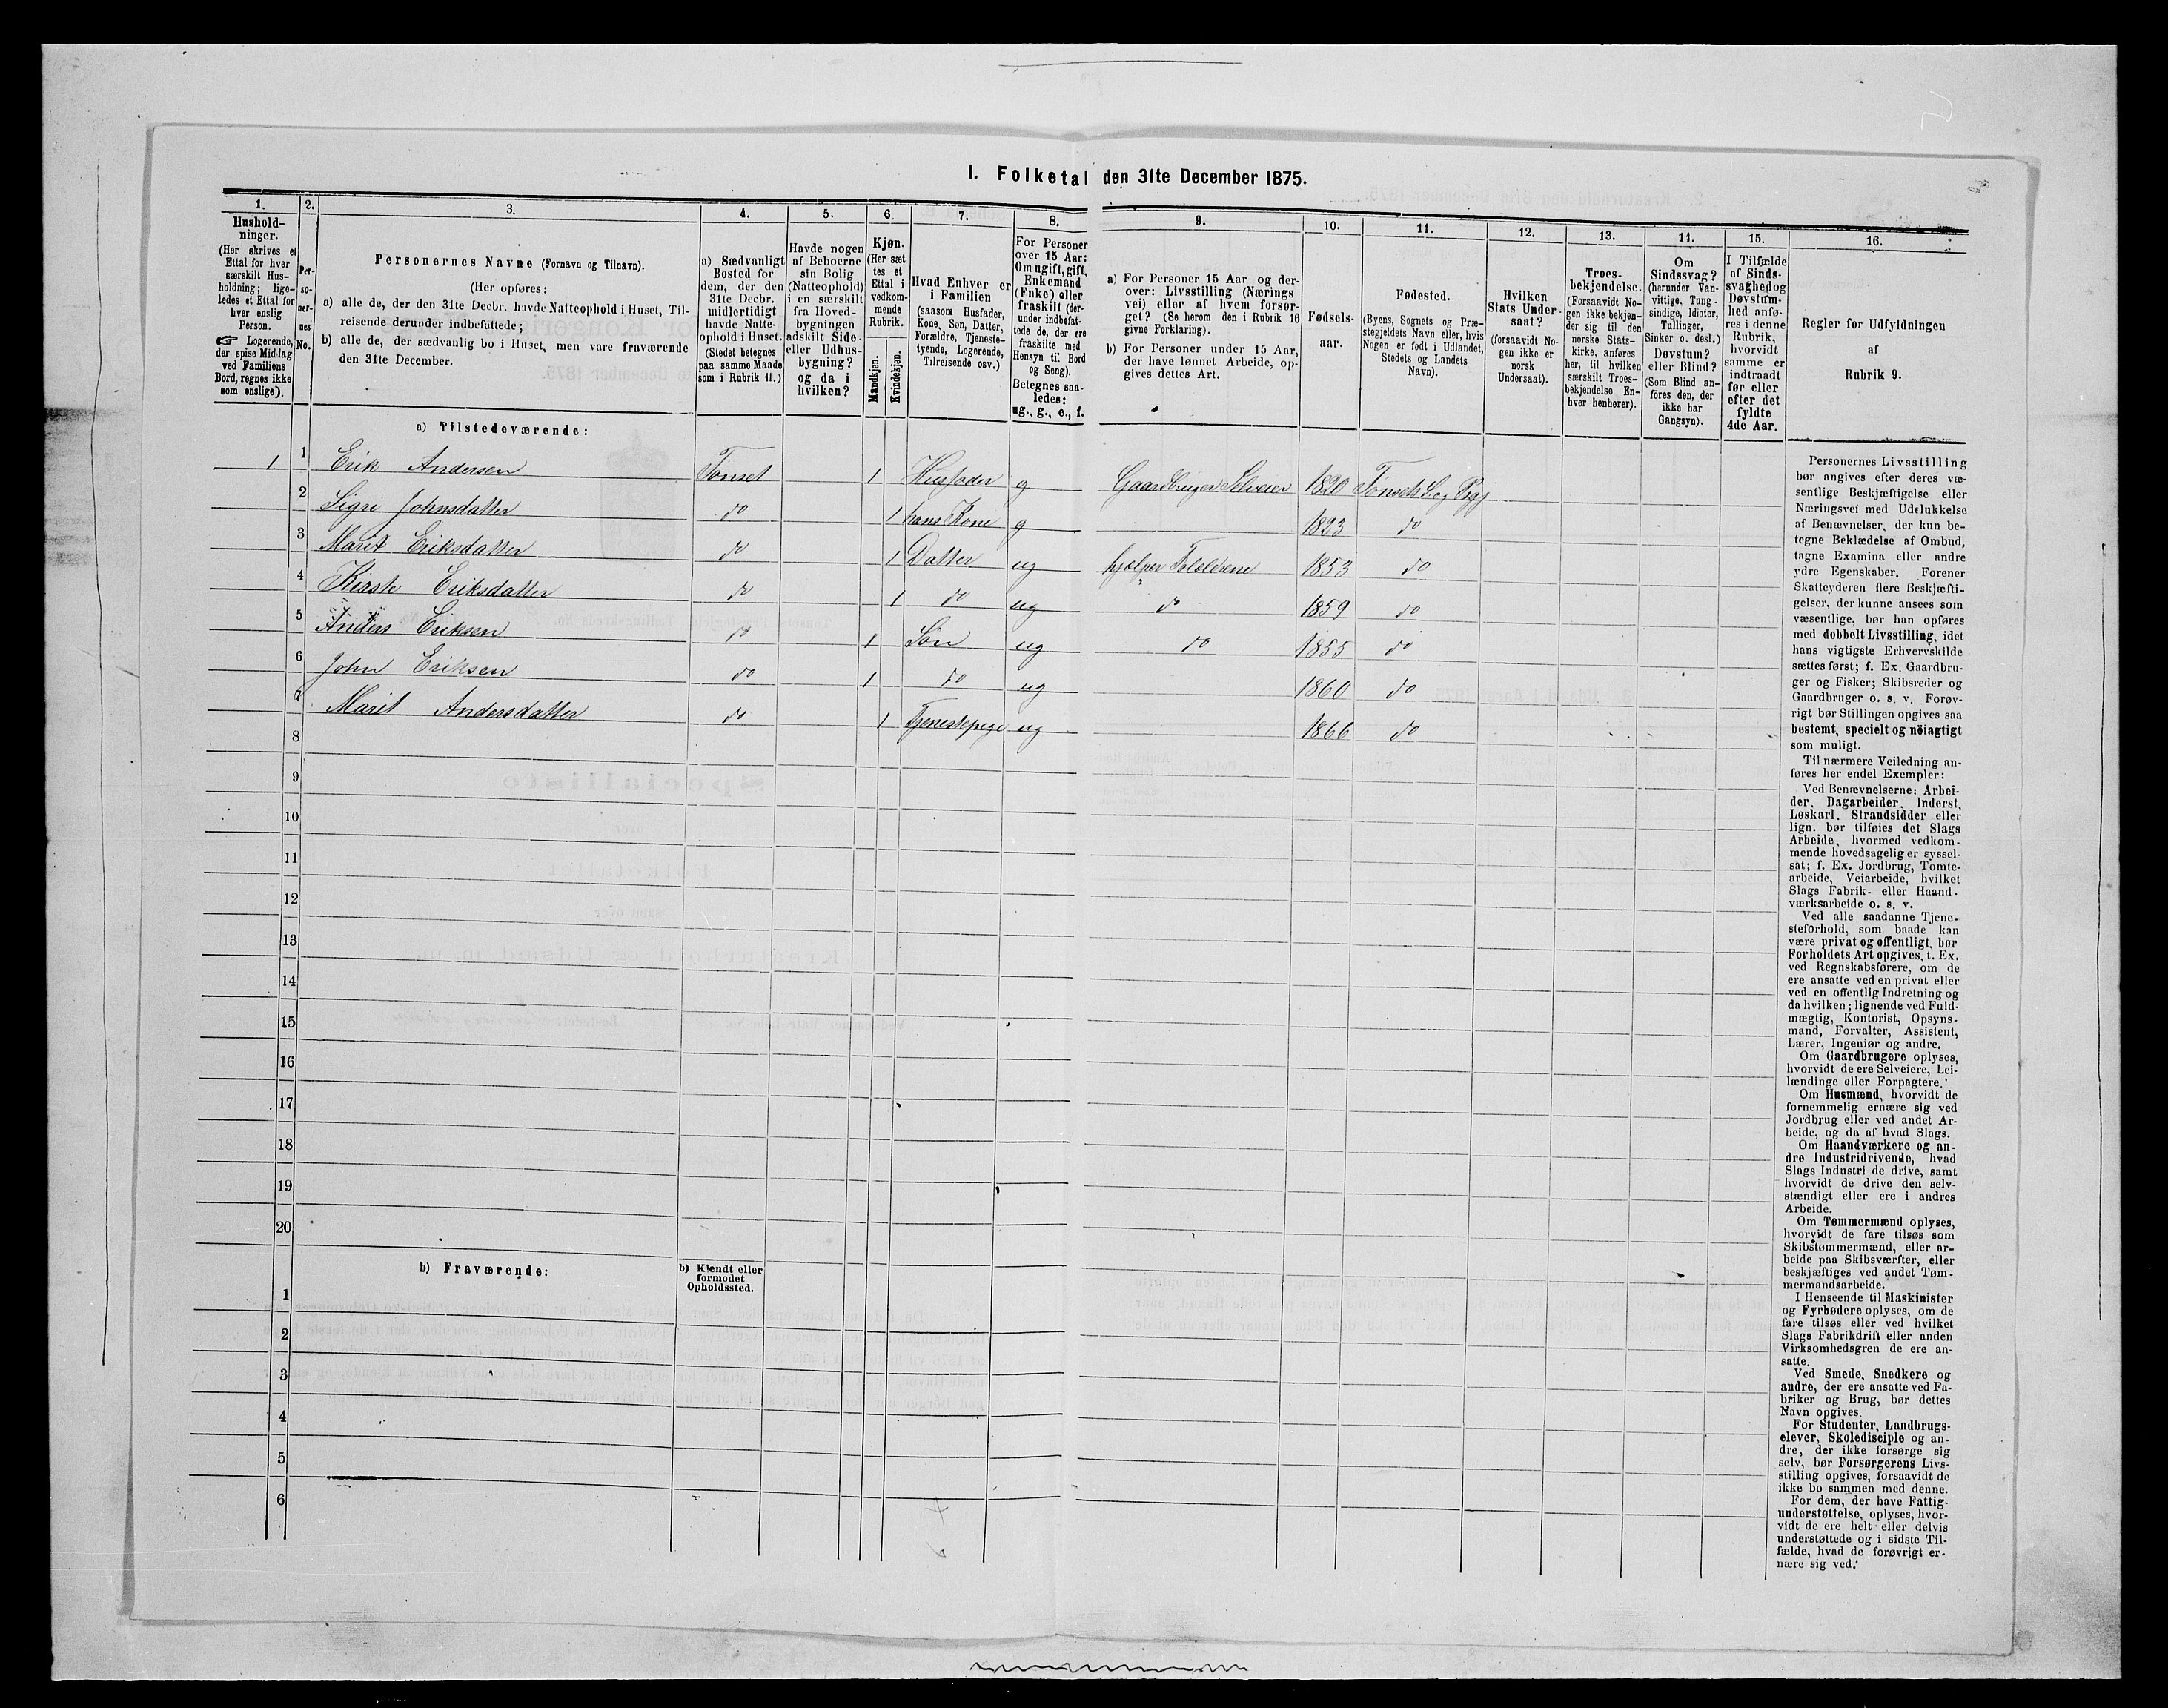 I. Folketal den 31te December 1875.
1.
Hushold-
ninger.
(Her skrives et
Ettal for hver
særskilt Hus-
holdning; lige-
ledes et Ettal for
hver enslig
Person.
☞ Logerende,
der spise Middag
ved Familiens
Bord, regnes ikke
som enslige).
2.
Per-
so-
ner-
nes
No.
3.
Personernes Navne (Fornavn og Tilnavn).
(Her opføres:
a) alle de, der den 31te Decbr. havde Natteophold i Huset, Til-
reisende derunder indbefattede;
b) alle de, der sædvanlig bo i Huset, men vare fraværende
den 31te December.
4.
a) Sædvanligt
Bosted for
dem, der den
31te Decbr.
midlertidigt
havde Natte-
ophold i Huset.
(Stedet betegnes
paa samme Maade
som i Rubrik 11.)
5.
Havde nogen
af Beboerne
sin Bolig
(Natteophold)
i en særskilt
fra Hoved-
bygningen
adskilt Side-
eller Udhus-
bygning?
og da i
hvilken?
6.
Kjøn.
(Her sæt
tes et
Ettal i
vedkom-
mende
Rubrik.
Mandkjøn.
Kvindekjøn.
7.
Hvad Enhver er
i Familien
(saasom Husfader,
Kone, Søn, Datter,
Forældre, Tjeneste-
tyende, Logerende,
Tilreisende osv.)
8.
For Personer
over 15 Aar:
Om ugift, gift,
Enkemand
(Enke) eller
fraskilt (der-
under indbefat-
tede de, der ere
fraskilte med
Hensyn til Bord
og Seng).
Betegnes saa-
ledes:
ug., g., e., f.
9.
a) For Personer 15 Aar og der-
over: Livsstilling (Nærings
vei) eller af hvem forsør-
get? (Se herom den i Rubrik 16
givne Forklaring).
b) For Personer under 15 Aar,
der have lønnet Arbeide, op-
gives dettes Art.
10.
Fødsels-
aar.
11.
Fødested.
(Byens, Sognets og Præ-
stegjeldets Navn eller, hvis
Nogen er født i Udlandet,
Stedets og Landets
Navn).
12.
Hvilken
Stats Under-
saat?
(forsaavidt No-
gen ikke er
norsk
Undersaat).
13.
Troes-
bekjendelse.
(Forsaavidt No-
gen ikke bekjen-
der sig til den
norske Stats-
kirke, anføres
her, til hvilken
særskilt Troes-
bekjendelse En-
hver henhører).
14.
Om
Sindssvag?
(herunder Van-
vittige, Tung-
sindige, Idioter,
Tullinger,
Sinker o. desl.)
Døvstum?
eller Blind?
(Som Blind an-
føres den, der
ikke har
Gangsyn).
15.
I Tilfælde
af Sinds-
svaghed og
Døvstum-
hed anfø-
res i denne
Rubrik,
hvorvidt
samme er
indtraadt
før eller
efter det
fyldte
4de Aar.
16.
Regler for Udfyldningen
af
Rubrik 9.
a) Tilstedeværende:
1 1 Erik Andersen Tønset 1 Husfader g Gaardbruger Selveier 1820 Tønset S. og Prgj
2 Sigri Johnsdatter do 1 hans Kone g 1823 do
3 Marit Eriksdatter do 1 Datter ug hjælper Forældrene 1853 do
4 Kirste Eriksdatter do 1 do ug do 1859 do
5 Anders Eriksen do 1 Søn ug do 1855 do
6 John Eriksen do 1 do ug 1860 do
7 Marit Andersdatter do 1 Tjenestepige ug 1866 do
8
9
10
11
12
13
14
15
16
17
18
19
20
b) Fraværende:
b) Kjendt eller
formodet
Opholdssted.
1
2
3
4
5
6
Personernes Livsstilling
bør angives efter deres væ-
sentlige Beskjæftigelse eller
Næringsvei med Udelukkelse
af Benævnelser, der kun be-
tegne Beklædelse af Ombud,
tagne Examina eller andre
ydre Egenskaber. Forener
Skatteyderen flere Beskjæfti-
gelser, der kunne ansees som
væsentlige, bør han opføres
med dobbelt Livsstilling, idet
hans vigtigste Erhvervskilde
sættes først; f. Ex. Gaardbru-
ger og Fisker; Skibsreder og
Gaardbruger o. s. v. Forøv-
rigt bør Stillingen opgives saa
bestemt, specielt og nöiagtigt
som muligt.
Til nærmere Veiledning an-
føres her endel Exempler:
Ved Benævnelserne: Arbei-
der, Dagarbeider, Inderst,
Løskarl, Strandsidder eller
lign. bør tilføies det Slags
Arbeide, hvormed vedkom-
mende hovedsagelig er syssel-
sat; f. Ex. Jordbrug, Tomte-
arbeide, Veiarbeide, hvilket
Slags Fabrik- eller Haand-
værksarbeide o. s. v.
Ved alle saadanne Tjene-
steforhold, som baade kan
være privat og offentligt, bør
Forholdets Art opgives, t. Ex.
ved Regnskabsførere, om de
ere ansatte ved en privat eller
ved en offentlig Indretning og
da hvilken; lignende ved Fuld-
mægtig, Kontorist, Opsyns-
mand, Forvalter, Assistent,
Lærer, Ingeniør og andre.
Om Gaardbrugere oplyses,
hvorvidt de ere Selveiere, Lei-
lændinge eller Forpagtere.
Om Husmænd, hvorvidt de
fornemmelig ernære sig ved
Jordbrug eller ved andet Ar-
beide, og da af hvad Slags.
Om Haandværkere og an-
dre Industridrivende, hvad
Slags Industri de drive, samt
hvorvidt de drive den selv-
stændigt eller ere i andres
Arbeide.
Om Tømmermænd oplyses,
hvorvidt de fare tilsøs som
Skibstømmermænd, eller ar-
beide paa Skibsværfter, eller
beskjæftiges ved andet Tøm-
mermandsarbeide.
I Henseende til Maskinister
og Fyrbødere oplyses, om de
fare tilsøs eller ved hvilket
Slags Fabrikdrift eller anden
Virksomhedsgren de ere an-
satte.
Ved Smede, Snedkere og
andre, der ere ansatte ved Fa-
briker og Brug, bør dettes
Navn opgives.
For Studenter, Landbrugs-
elever, Skoledisciple og an-
dre, der ikke forsørge sig
selv, bør Forsørgerens Livs-
stilling opgives, forsaavidt de
ikke bo sammen med denne.
For dem, der have Fattig-
understøttelse, oplyses, hvor-
vidt de ere helt eller delvis
understøttede og i sidste Til-
fælde, hvad de forøvrigt er-
nære sig ved.